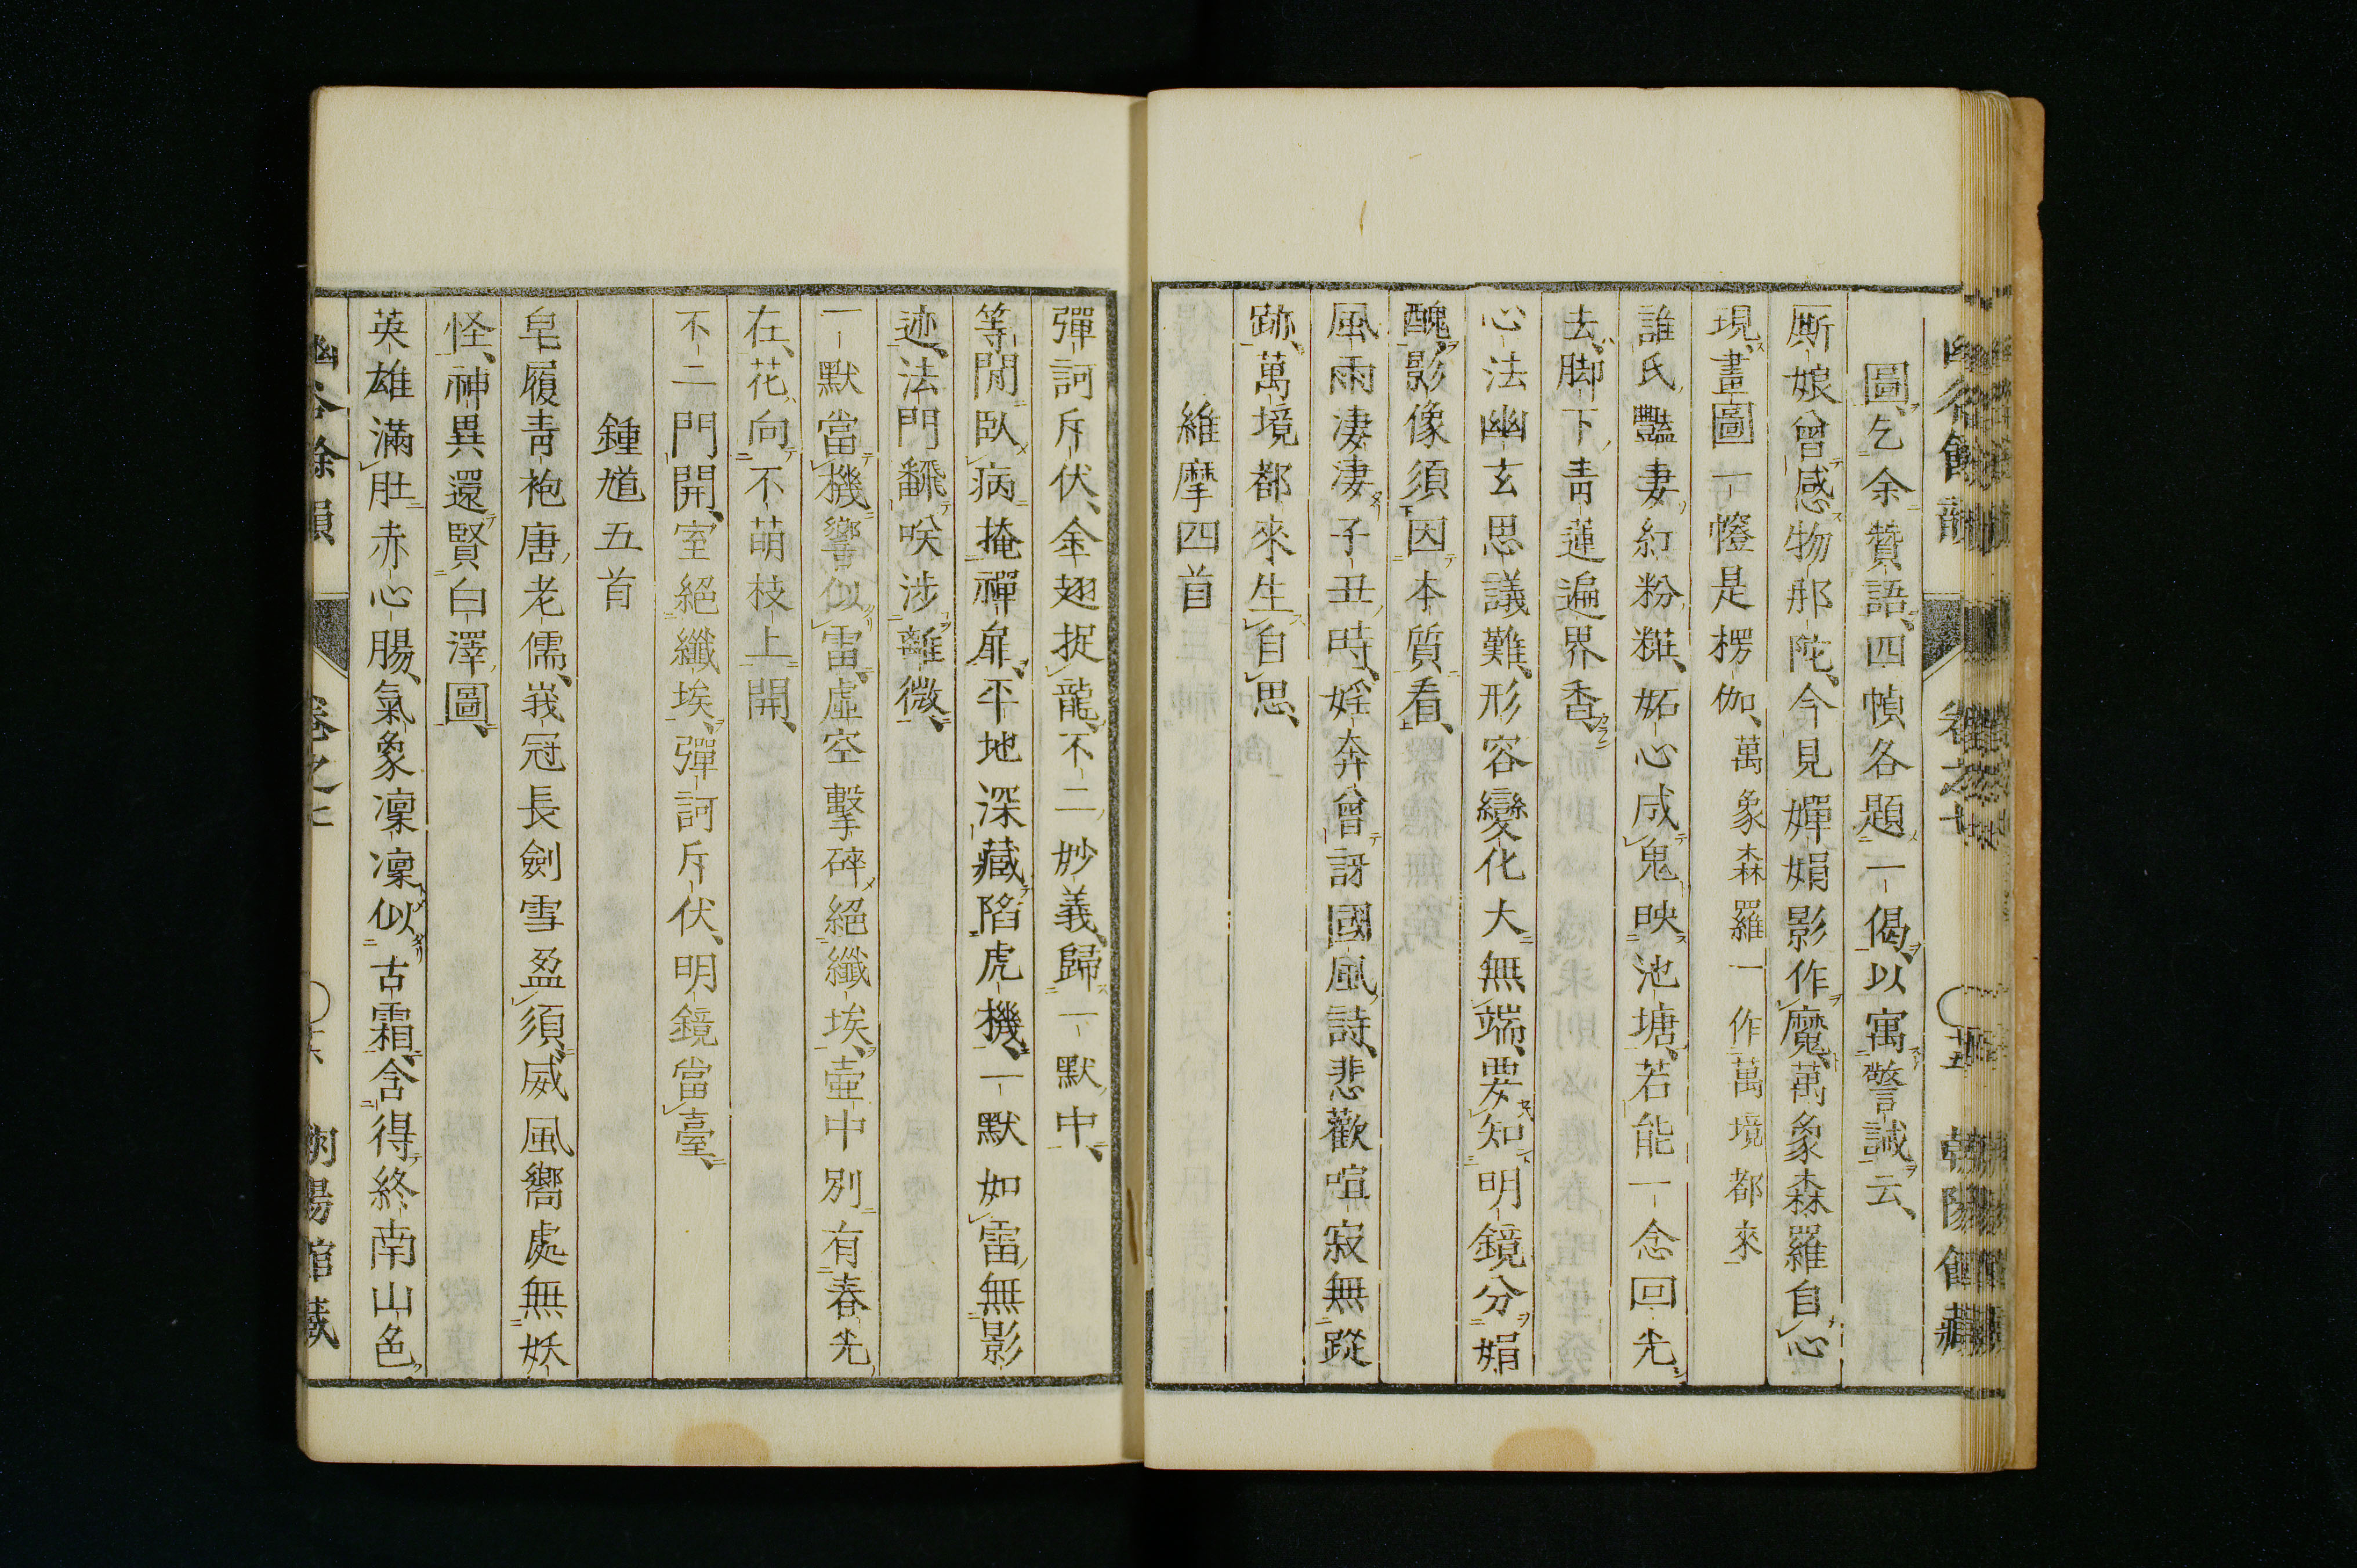 圖乞余贊語四幀各題一偈以寓警誡云
厮娘曾感物那陀今見嬋娟影作魔萬象森羅自心
現畫圖一幢是楞伽萬象森羅一作萬境都來
誰氏豔妻紅粉糚妬心成鬼映池塘若能一念回光
去脚下青蓮遍界香
心法幽玄思議難形容變化大無端要知明鏡分娟
醜影像須因本質看
風雨凄凄子丑時婬奔曾訝國風詩悲歡喧寂無蹤
跡萬境都來生自思
維摩四首
彈訶斥伏金翅捉龍不二妙義歸一默中
等閒臥病掩禪扉平地深藏陷虎機一默如雷無影
迹法門翻唉涉離微
一默當機響似雷虛空擊碎絕纖埃壺中別有春光
在花向不萌枝上開
不二門開室絕纖埃彈訶斥伏明鏡當臺
鍾馗五首
皂履青袍唐老儒峩冠長劍雪盈須威風嚮處無妖
怪神異還賢白澤圖
英雄滿肚赤心腸氣象凜凜似古霜含得終南山色
幽谷餘韻 卷之七 朝陽館藏